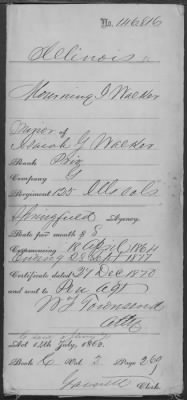 No. 146816
Illinois
Mourning J Walker
Minor of
Isaiah G Walker
Rank Priv
Company G
Regiment 125 Ills Vols
Springfield Agency.
Rate per month $ 8
Commencing 18 1864
Ending 28 Sept 1877
Certificate dated 27 Dec 1870
and sent to Pen Agt
W Townsend
Atty
Act 14th July, 1862.
Book C Vol. 2 Page 269
Clerk.